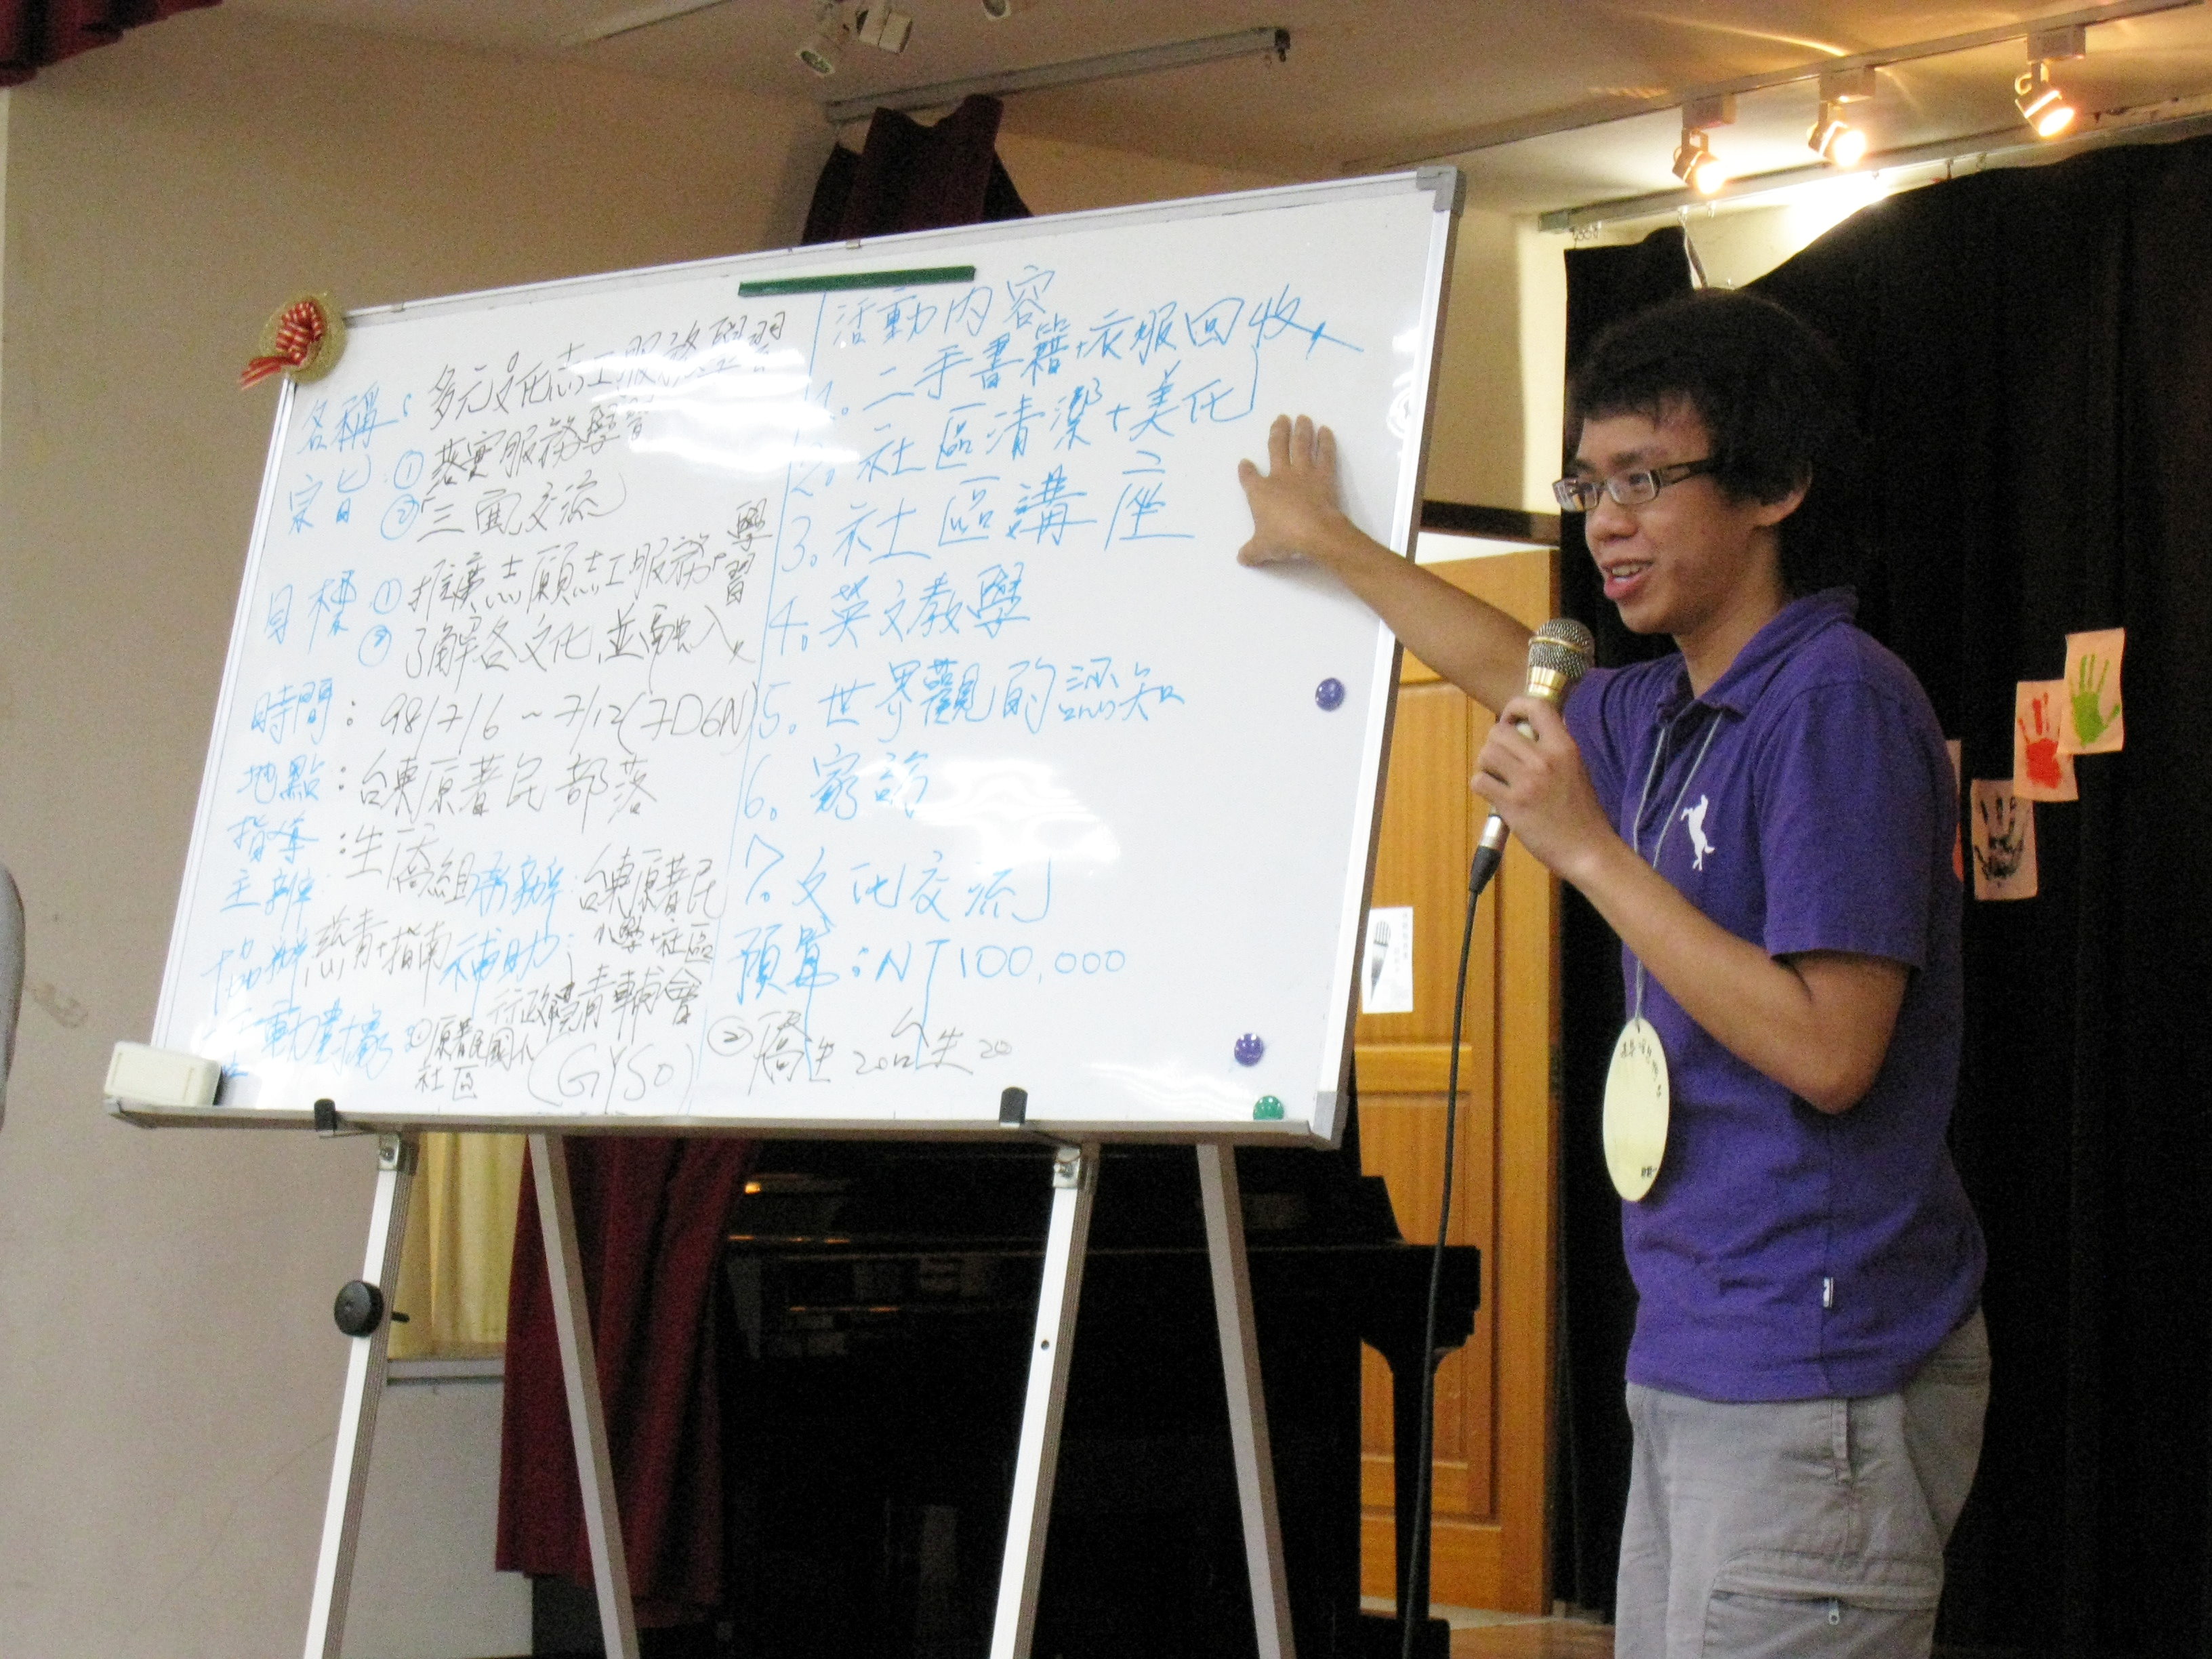 名稱：多元文化志工服務學習
宗旨：①落實服務學習
②「三面交流」
目標：①推廣志願志工服務學習
②了解各文化，並融入
時間：98/7/6～7/12(7D6N)
地點：台東原著民部落
指導：生僑組
主辦 承辦：台東原著民小學+社區
協辦 慈青+指南 補助：行政院青輔會
(GYSD)
活動對象 ①原著民國小社區
②僑生20台生20
活動內容
1。二手書籍+衣服回收
2。社區清潔+美化
3。社區講座
4。英文教學
5。世界觀的認知
6。家訪
7。文化交流
預算：NT100,000